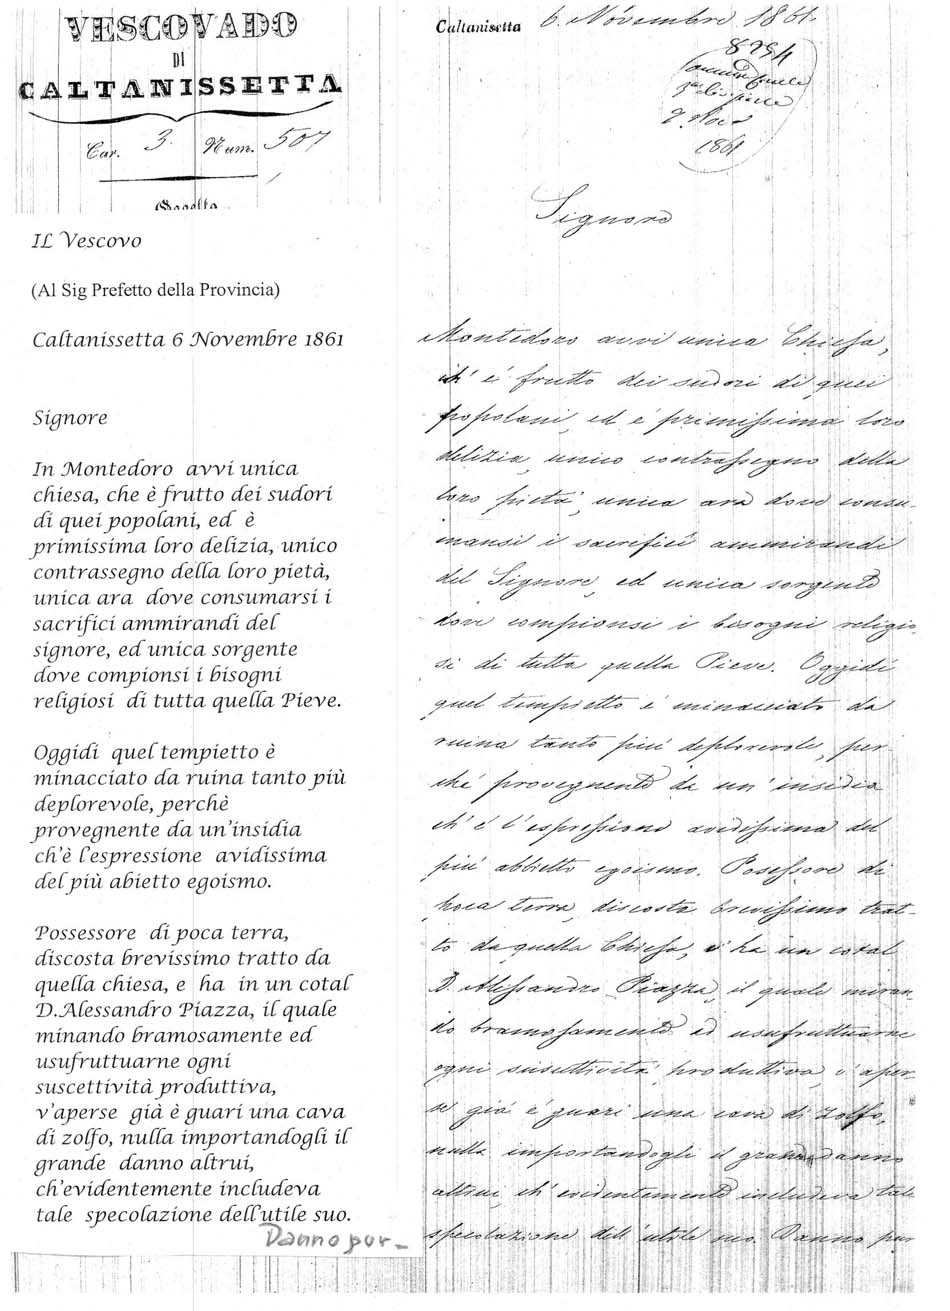 VESCOVADO
DI
CALTANISSETTA
Car. 3. Num. 507
IL Vescovo
(Al Sig Prefetto della Provincia)
Caltanissetta 6 Novembre 1861
Signore
In Montedoro avvi unica
chiesa, che è frutto dei sudori
di quei popolani, ed è
primissima loro delizia, unico
contrassegno della loro pietà,
unica ara dove consumarsi i
sacrifici ammirandi del
signore, ed unica sorgente
dove compionsi i bisogni
religiosi di tutta quella Pieve.
Oggidì quel tempietto è
minacciato da ruina tanto più
deplorevole, perchè
provegnente da un'insidia
ch'è l'espressione avidissima
del più abietto egoismo.
Possessore di poca terra,
discosta brevissimo tratto da
quella chiesa, e ha in un cotal
D.Alessandro Piazza, il quale
minando bramosamente ed
usufruttuarne ogni
suscettività produttiva,
v'aperse già è guari una cava
di zolfo, nulla importandogli il
grande danno altrui,
ch'evidentemente includeva
tale specolazione dell'utile suo.
Danno pur_
Caltanisetta 6. Novembre 1861.
8294
2. Nove
1861
Signore
Montedoro avvi unica Chiesa,
ch' è frutto dei sudori di quei
popolani, ed è primissima loro
delizia, unico contrassegno della
loro pietà, unica ara dove consu-
mansi i sacrifici ammirandi
del Signore, ed unica sorgente
dove compionsi i bisogni religio
si di tutta quella Pieve. Oggidì
quel tempietto è minacciato da
ruina tanto più deplorevole, per-
ché provegnente da un'insidia
ch' è l'espressione avidissima del
più abbietto egoismo. Posessore di
poca terra, discosta brevissimo trat-
to da quella Chiesa, v'ha un cotal
D. Alessandro Piazza, il quale miran-
do bramosamente ad usufruttuarne
ogni suscettività produttiva, v'aper-
se già è guari una cava di zolfo,
nulla importandogli il grande danno
altrui, ch' evidentemente includeva tale
specolazione dell' utile suo. Danno pur